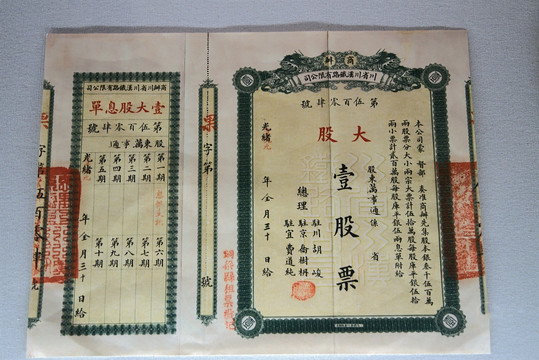 商辦
川省川漢鐵路有限公司
第伍百零肆號
本公司蒙 督部 奏准商辦先集股本銀叁千伍百萬
兩股票分大小兩宗大票計伍拾萬股每股庫平銀伍拾
兩小票計貳百萬股每股庫平銀伍兩息單附給
股東萬事通係 省
大股
壹股票
總理
駐川 胡峻
駐京 喬樹枬
駐宜 費道純
光緒
年 月三十日給
票字第 號
商辦川省川漢鐵路有限公司
壹大股息單
第伍百零肆號
股東萬事通
第一期
第二期
第三期
第四期
第五期
第六期
第七期
第八期
第九期
第十期
光緒
年 月三十日給